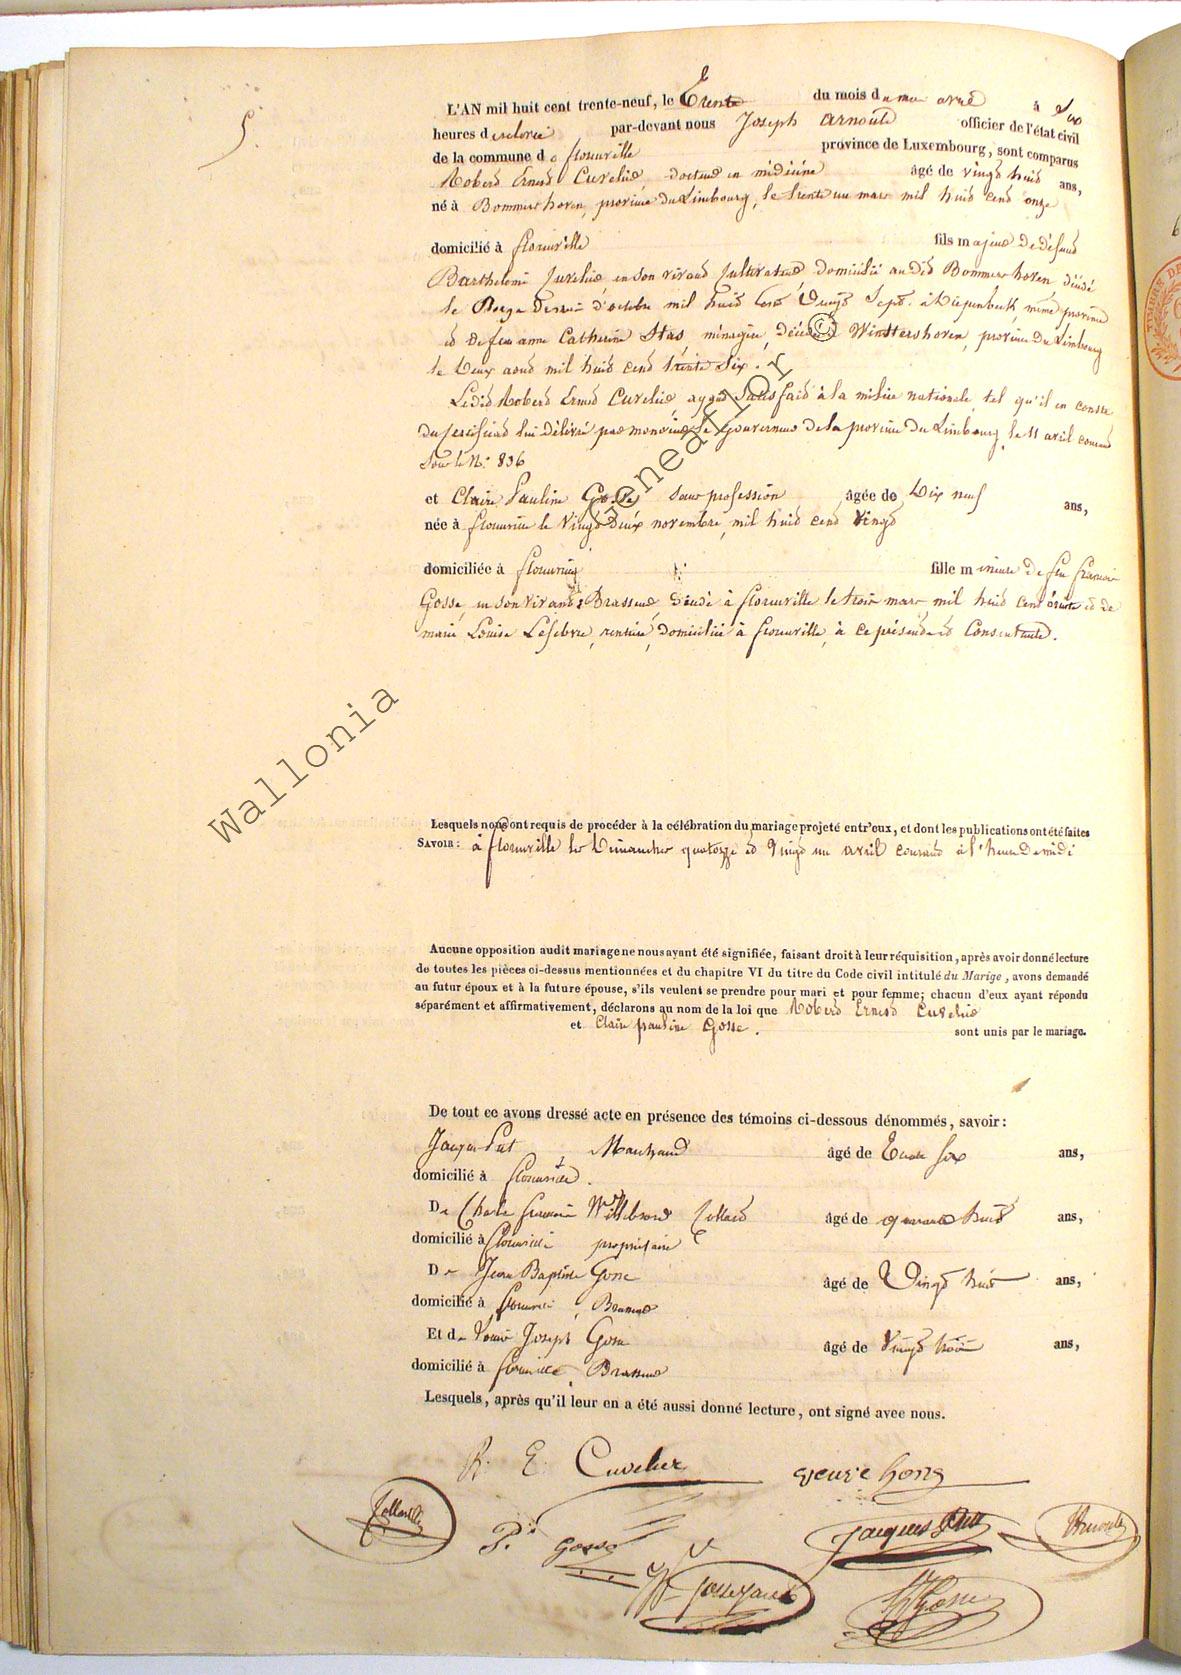 5.
L'AN mil huit cent trente-neuf, le trente du mois d'avril à
heures de relevée par-devant nous Joseph Arnould officier de l'état civil
de la commune de florenville province de Luxembourg, sont comparus
Robert Ernest Cuvelier docteur en médicine âgé de vingt huit ans,
né à Bommershoven, province du Limbourg, le trente un mars mil huit cent onze
domicilié à florenville fils majeur de défunt
Barthelemi Cuvelier en son vivant cultivateur domicilié audit Bommershoven, décédé
le d'octobre mil huit cent vingt sept à Diepenbeek, même province
et de feu anne Catherine Stas, ménagère, décédée à Wintershoven, province du Limbourg
le deux aout mil huit cent trente six.
Ledit Robert Ernest Cuvelier, ayant satisfait à la milice nationale, tel qu'il en conste
du certificat lui délivré par monsieur le Gouverneur de la province du Limbourg, le 11 avril courant
sous le No. 836
et Claire Pauline Gosse sans profession âgée de Dix neuf ans,
née à florenville le vingt deux novembre, mil huit cent vingt
domiciliée à florenville fille mineure de feu françois
Gosse, en son vivant Brasseur décédé à florenville le trois mars mil huit cent trente et de
marie Louise Lefebvre, rentière, domiciliée à florenville, à ce présente et consentante.
Lesquels nous ont requis de procéder à la célébration du mariage projeté entr'eux, et dont les publications ont été faites
SAVOIR : à florenville les Dimanches quatorze et vingt un avril courant à l'heure de midi
Aucune opposition audit mariage ne nous ayant été signifiée, faisant droit à leur réquisition, après avoir donné lecture
de toutes les pièces ci-dessus mentionnées et du chapitre VI du titre du Code civil intitulé du Marige, avons demandé
au futur époux et à la future épouse, s'ils veulent se prendre pour mari et pour femme; chacun d'eux ayant répondu
séparément et affirmativement, déclarons au nom de la loi que Robert Ernest Cuvelier
et Claire pauline Gosse. sont unis par le mariage.
De tout ce avons dressé acte en présence des témoins ci-dessous dénommés, savoir :
Jacques Put, Marchand âgé de trente six ans,
domicilié à florenville.
De Charles françois Willebrord Collard âgé de quarante huit ans,
domicilié à florenville propriétaire
De Jean Baptiste Gosse âgé de Vingt huit ans,
domicilié à florenville, Brasseur
Et de Louis Joseph Gosse âgé de vingt trois ans,
domicilié à florenville, Brasseur
Lesquels, après qu'il leur en a été aussi donné lecture, ont signé avec nous.
R. E. Cuvelier
Collard
P. Gosse
Jacques Put
Arnould
Gosse
Wallonia
Geneaflor ©